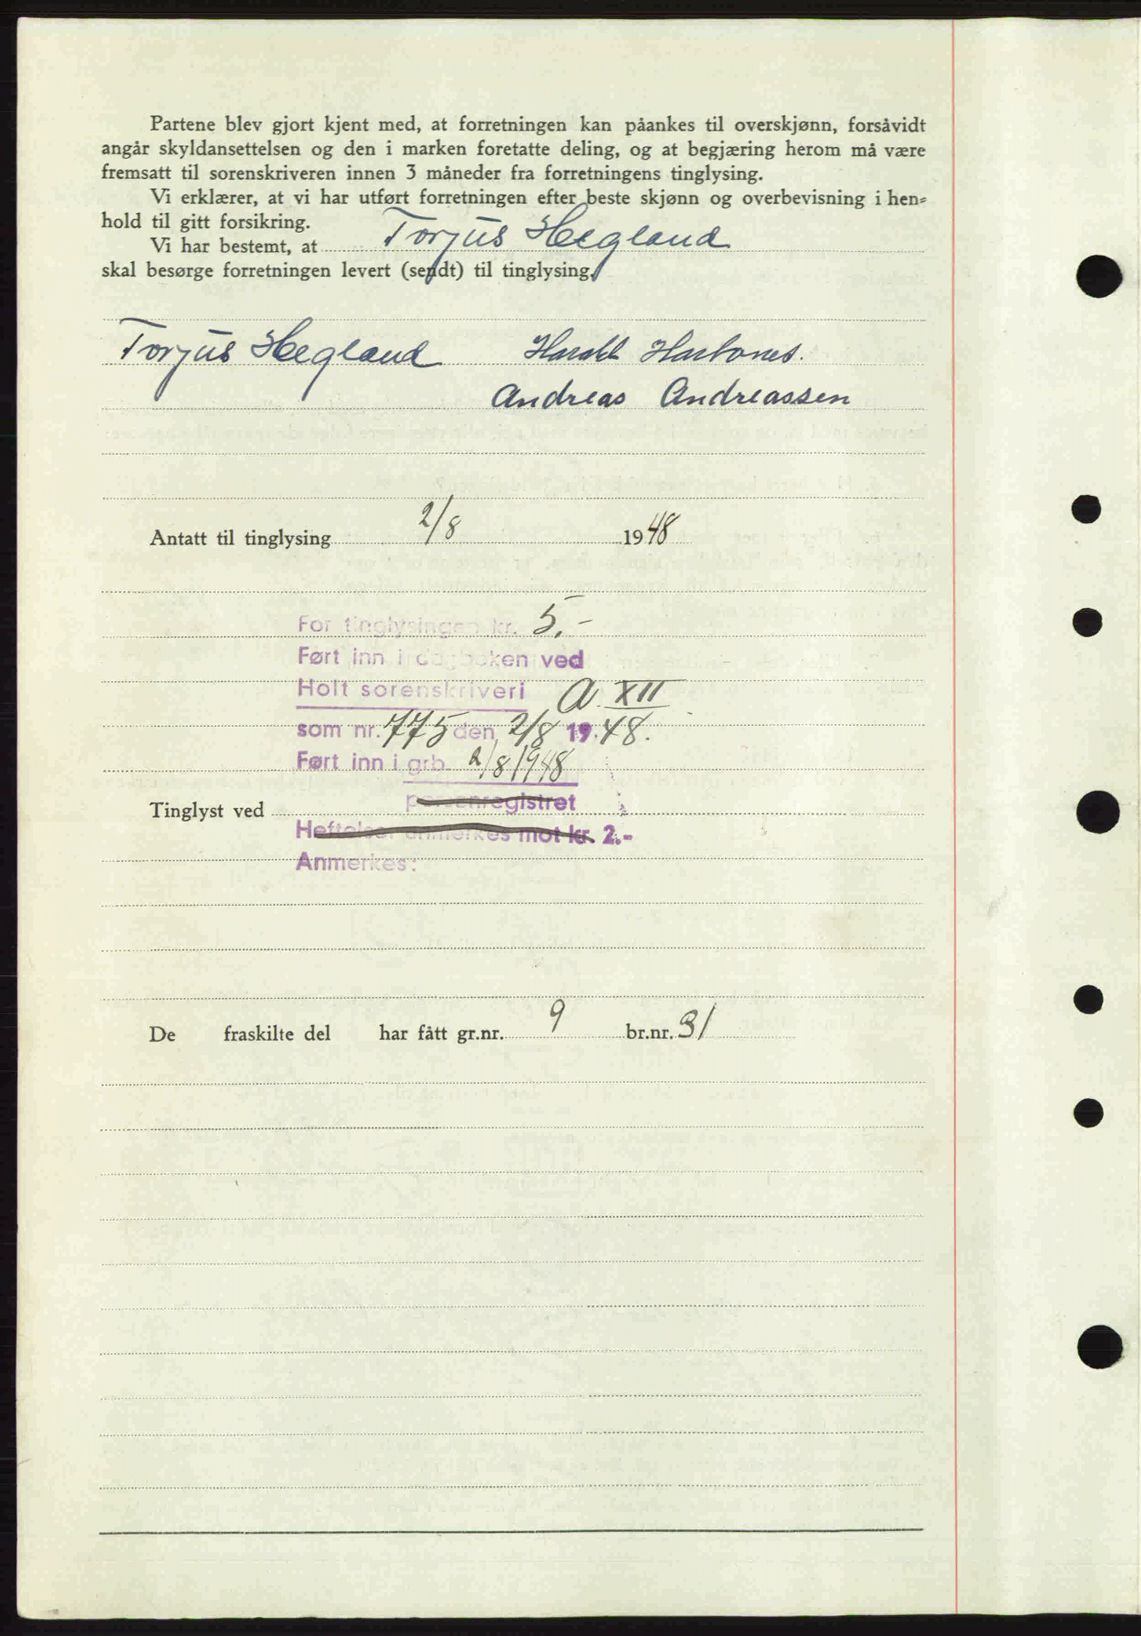 Partene blev gjort kjent med, at forretningen kan påankes til overskjønn, forsåvidt
angår skyldansettelsen og den i marken foretatte deling, og at begjæring herom må være
fremsatt til sorenskriveren innen 3 måneder fra forretningens tinglysing.
Vi erklærer, at vi har utført forretningen efter beste skjønn og overbevisning i hen-
hold til gitt forsikring.
Vi har bestemt, at Torjus Hegland
skal besørge forretningen levert (sendt) til tinglysing.
Torjus Hegland Harald
Andreas Andreassen
Antatt til tinglysing 2/8 1948
For tinglysingen kr. 5.-
Ført inn i dagboken ved
Holt sorenskriveri A XII
som nr. 775 den 2/8 19.48.
Ført inn i grb. 2/8 1948
Tinglyst ved panteregistret
Heftelser anmerkes mot kr. 2.-
Anmerkes:
De fraskilte del har fått gr.nr. 9 br.nr. 31